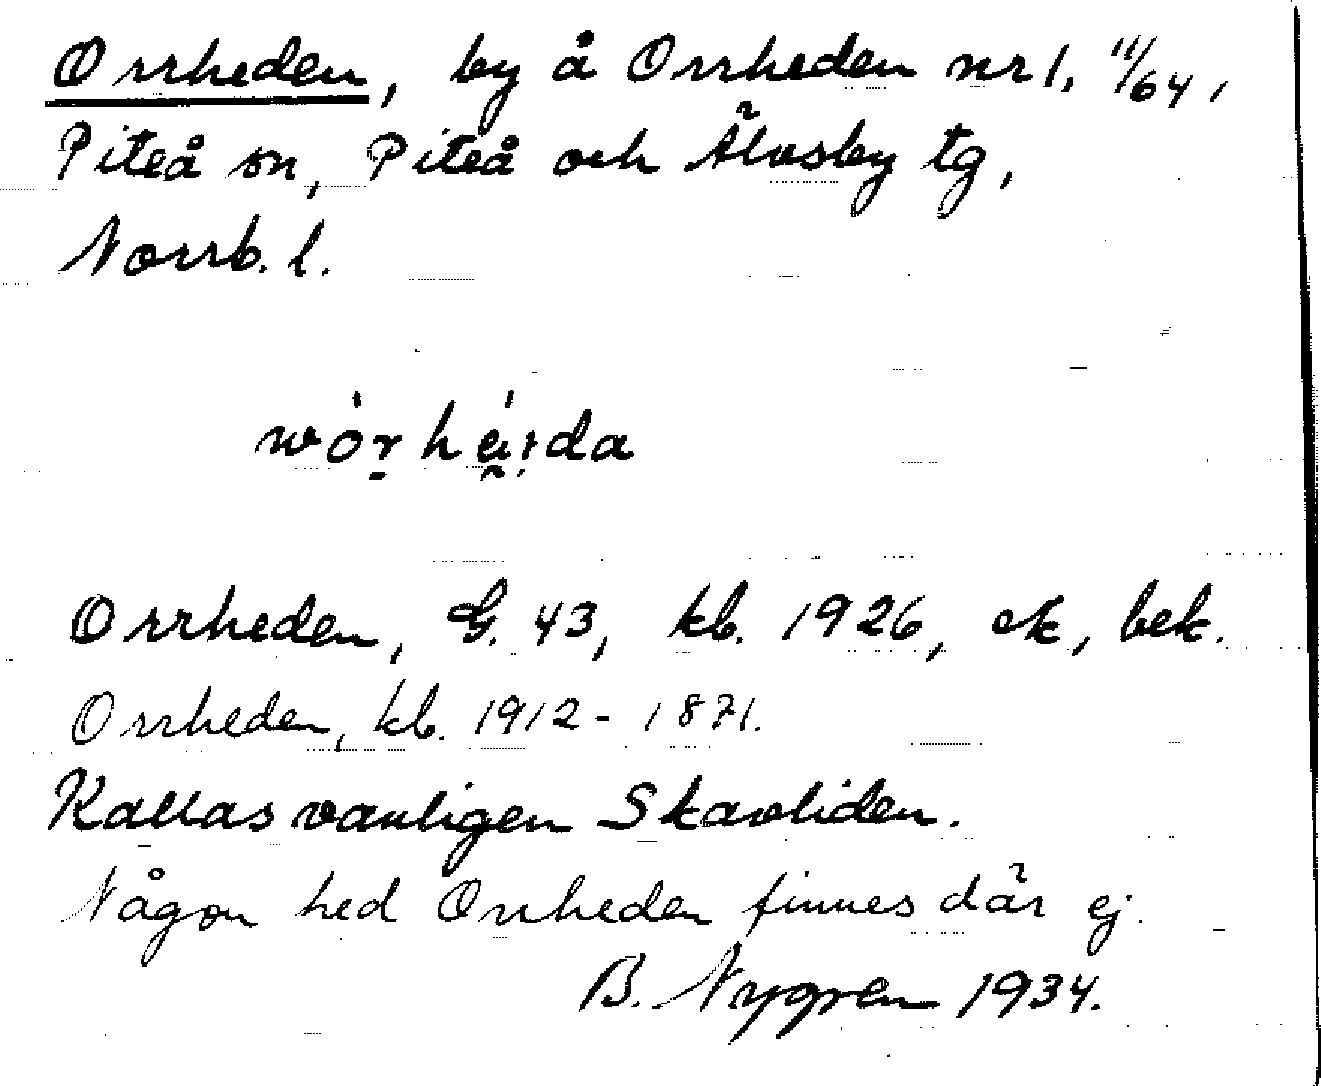 Orrheden, by å Orrheden nr 1, 11/64,
Piteå sn, Piteå och Älvsby tg,
Norrb. l.
Orrheden, G. 43, kb. 1926, ek, bek.
Orrheden, kb. 1912 - 1871.
Kallas vanligen Skavliden.
Någon hed Orrheden finnes där ej.
B. Nygren 1934.